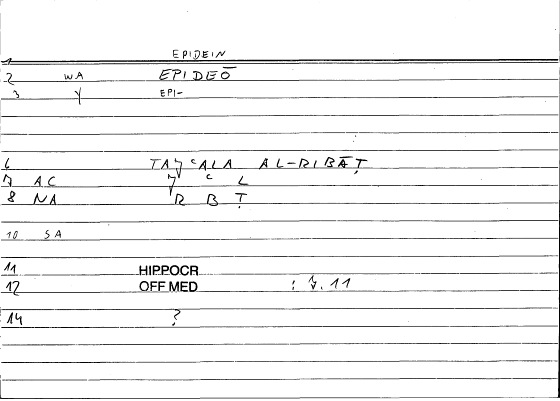 1 EPIDEIN
2 WA EPIDEŌ
3 V EPI-
6 TAǦʿALA AL-RIBĀṬ
7 AC Ǧ ʿ L
8 NA R B Ṭ
10 SA
11 HIPPOCR
12 OFF MED : 7. 11
14 ?